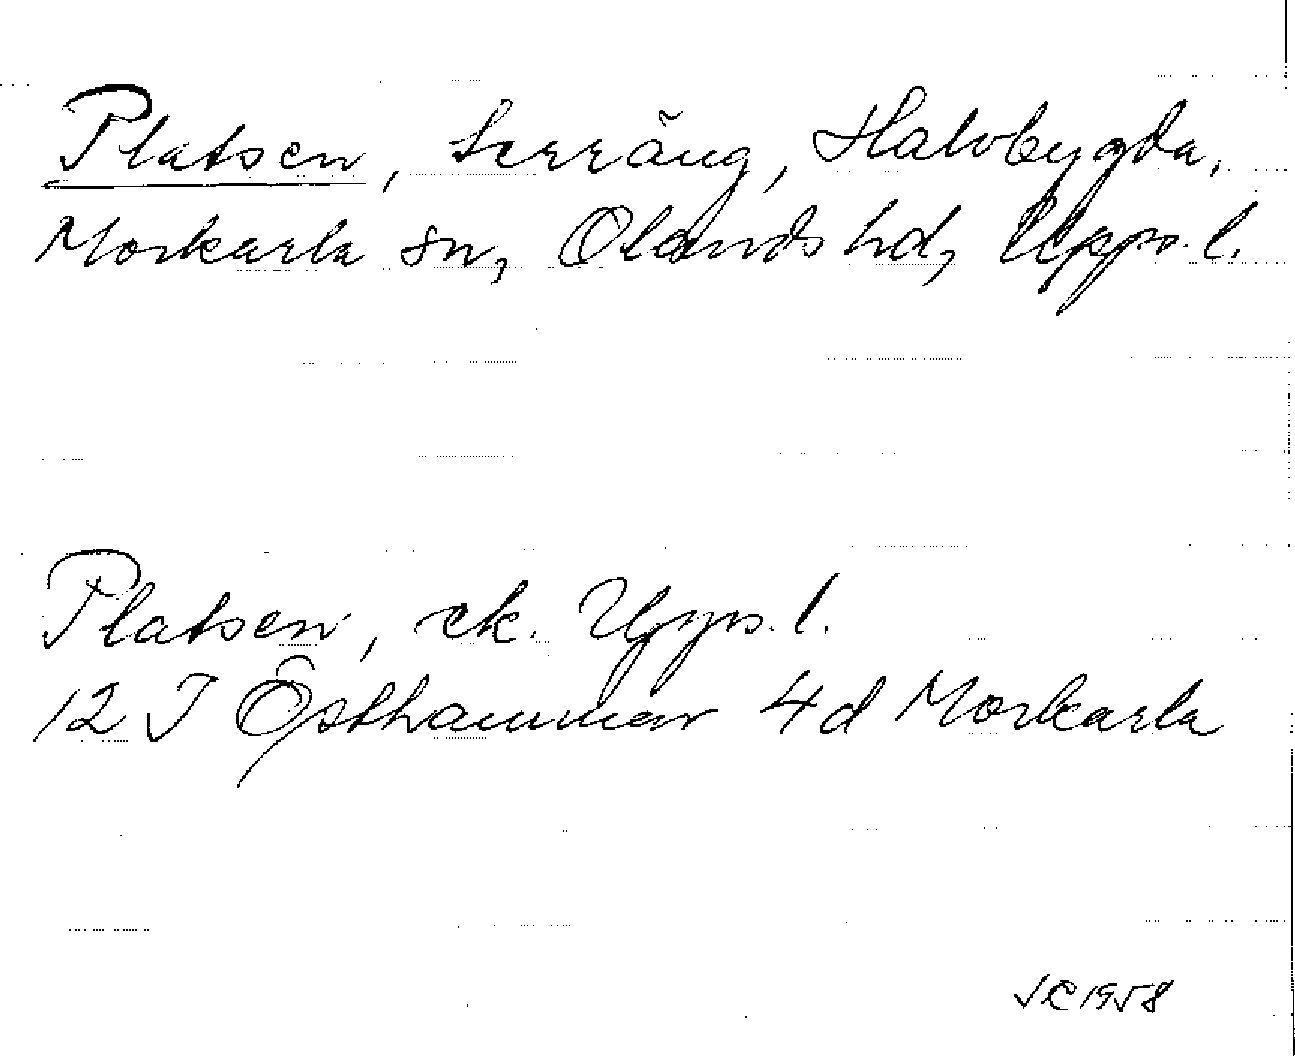 Platsen, terräng, Halvbygda,
Morkarla sn, Olands hd, Upps. l.
Platsen, ek. Upps. l.
12 I Östhammar 4d Morkarla
1958